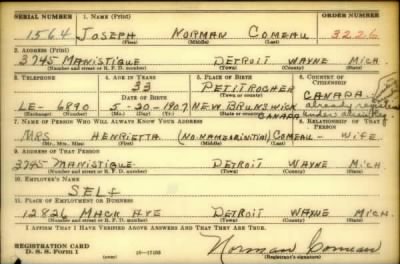 SERIAL NUMBER 1. NAME (Print) ORDER NUMBER
1564 JOSEPH NORMAN COMEAU 3226
(First) (Middle) (Last)
2. ADDRESS (Print)
3745 MANISTIQUE DETROIT WAYNE MICH
(Number and street or R. F. D. number) (Town) (County) (State)
3. TELEPHONE 4. AGE IN YEARS 5. PLACE OF BIRTH 6. COUNTRY OF CITIZENSHIP
33 PETITROCHER CANADA
DATE OF BIRTH (Town or county) already
LE- 6890 5-20-1907 NEW BRUNSWICK under alien
CANADA
(State or country)
7. NAME OF PERSON WHO WILL ALWAYS KNOW YOUR ADDRESS 8. RELATIONSHIP OF THAT PERSON
MRS HENRIETTA (NO NAME OR INITIAL) COMEAU - WIFE
(Mr., Mrs., Miss) (First) (Middle) (Last)
9. ADDRESS OF THAT PERSON
3745 MANISTIQUE DETROIT WAYNE MICH.
(Number and street or R. F. D. number) (Town) (County) (State)
10. EMPLOYER'S NAME
SELF
11. PLACE OF EMPLOYMENT OR BUSINESS
12826 MACK AVE DETROIT WAYNE MICH.
(Number and street or R. F. D. number) (Town) (County) (State)
I AFFIRM THAT I HAVE VERIFIED ABOVE ANSWERS AND THAT THEY ARE TRUE.
REGISTRATION CARD
D. S. S. Form 1
Norman Comeau
(Registrant's signature)